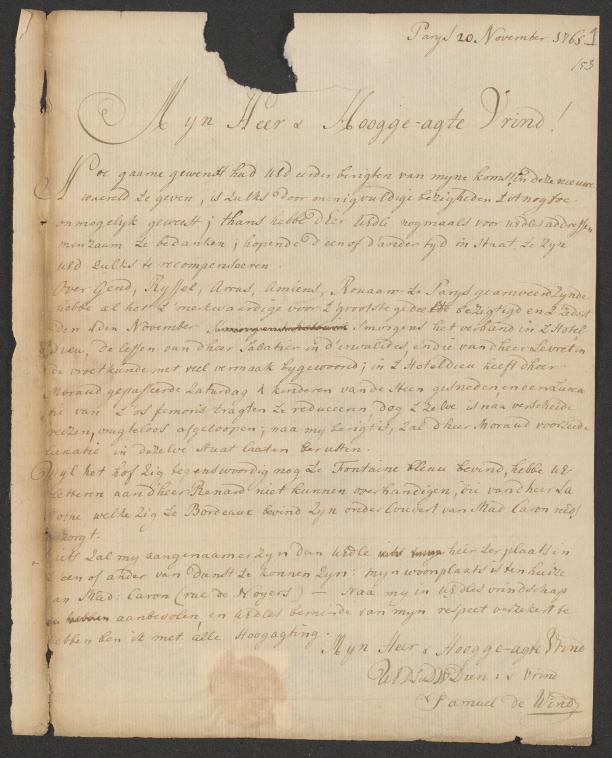 Parys 20 November 1765
1
153
Myn Heer & Hoogge-agte Vrind!
Hoe gaarne gewenscht had UEd eerder berigten van myne komst in deze nieuwe
waereld te geven, is zulks door menigvuldige bezigheden tot nog toe
onmogelyk geweest; thans hebbe d'eer UEdle nogmaals voor UEdles addressen
minzaam te bedanken; hopende d'een of d'ander tyd in staat te zyn
UEd zulks te recompenseeren.
Over Gend, Ryssel, Arras, Amiens, Rouaan te Parys geamveerd zynde
hebbe al het 't merkwaardige voor 't grootste gedeelte bezigtigd en 't zedert
den November smorgens het verband in 't Hotel
Dieu, de lessen van dheer Sabatier in d'invalides, en die van dheer Levret in
de vroetkunde met veel vermaak bygewoond; in 't Hoteldieu heeft dheer
Moraud gepasseerde Saturdag 4 kinderen van de Steen gesneden, en een luxa
tie van 't os femoris tragten te reduceeren, dog 't zelve is naa verscheide
reizen, vrugteloos afgeloopen; naa my berigt is, zal dheer Moraud voorzeide
luxatie in dezelve staat laaten berusten.
Wyl het hof zig tegenswoordig nog te Fontaine bleau bevind, hebbe UE
letteren aan dheer Renard niet kunnen overhandigen, die van dheer La
Mothe welke zig te Bordeaux bevind zyn onder Couvert van Mad Caron
bezorgt.
Niets zal my aangenaamer zyn dan UEdle hier ter plaats in
't een of ander van dienst te konnen zyn: myn woonplaats is ten huize
van Mad: Caron (rue de Noyers) — Naa my in UEdles vrindschap
aanbevolen, en UEdles beminde van myn respect verzekert te
hebben ben ik met alle Hoogagting.
Myn Heer & Hoogge-agte Vrind
UEd Dien: & Vrind
Samuel de Wind